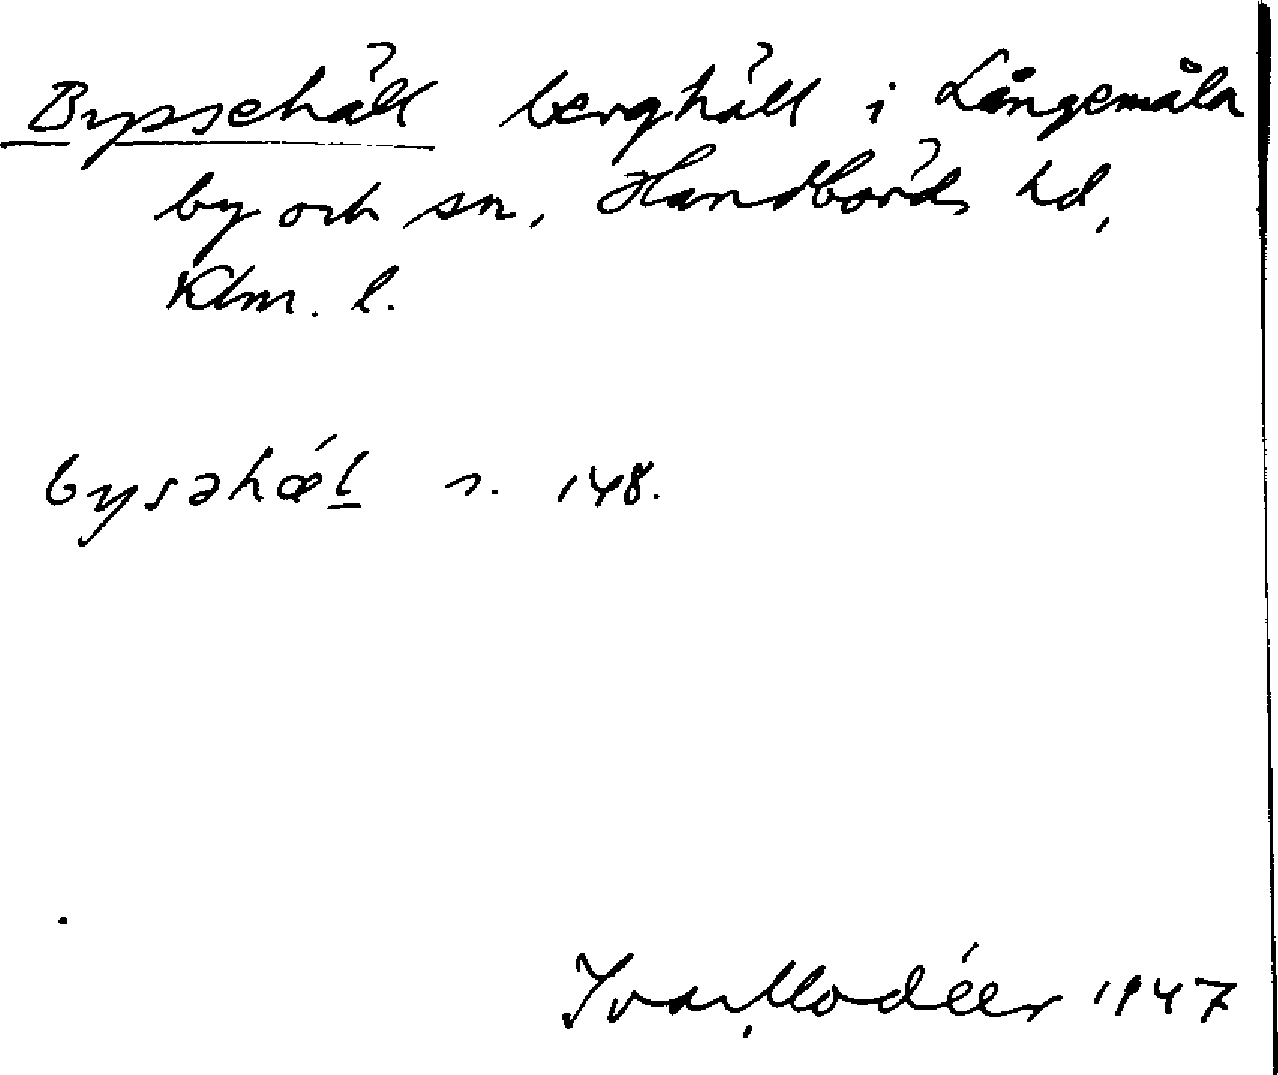 Byssehäll berghäll i Långemåla
by och sn, Handbörds hd,
Klm. l.
bysəhǽl s. 148.
Ivar Modéer 1947